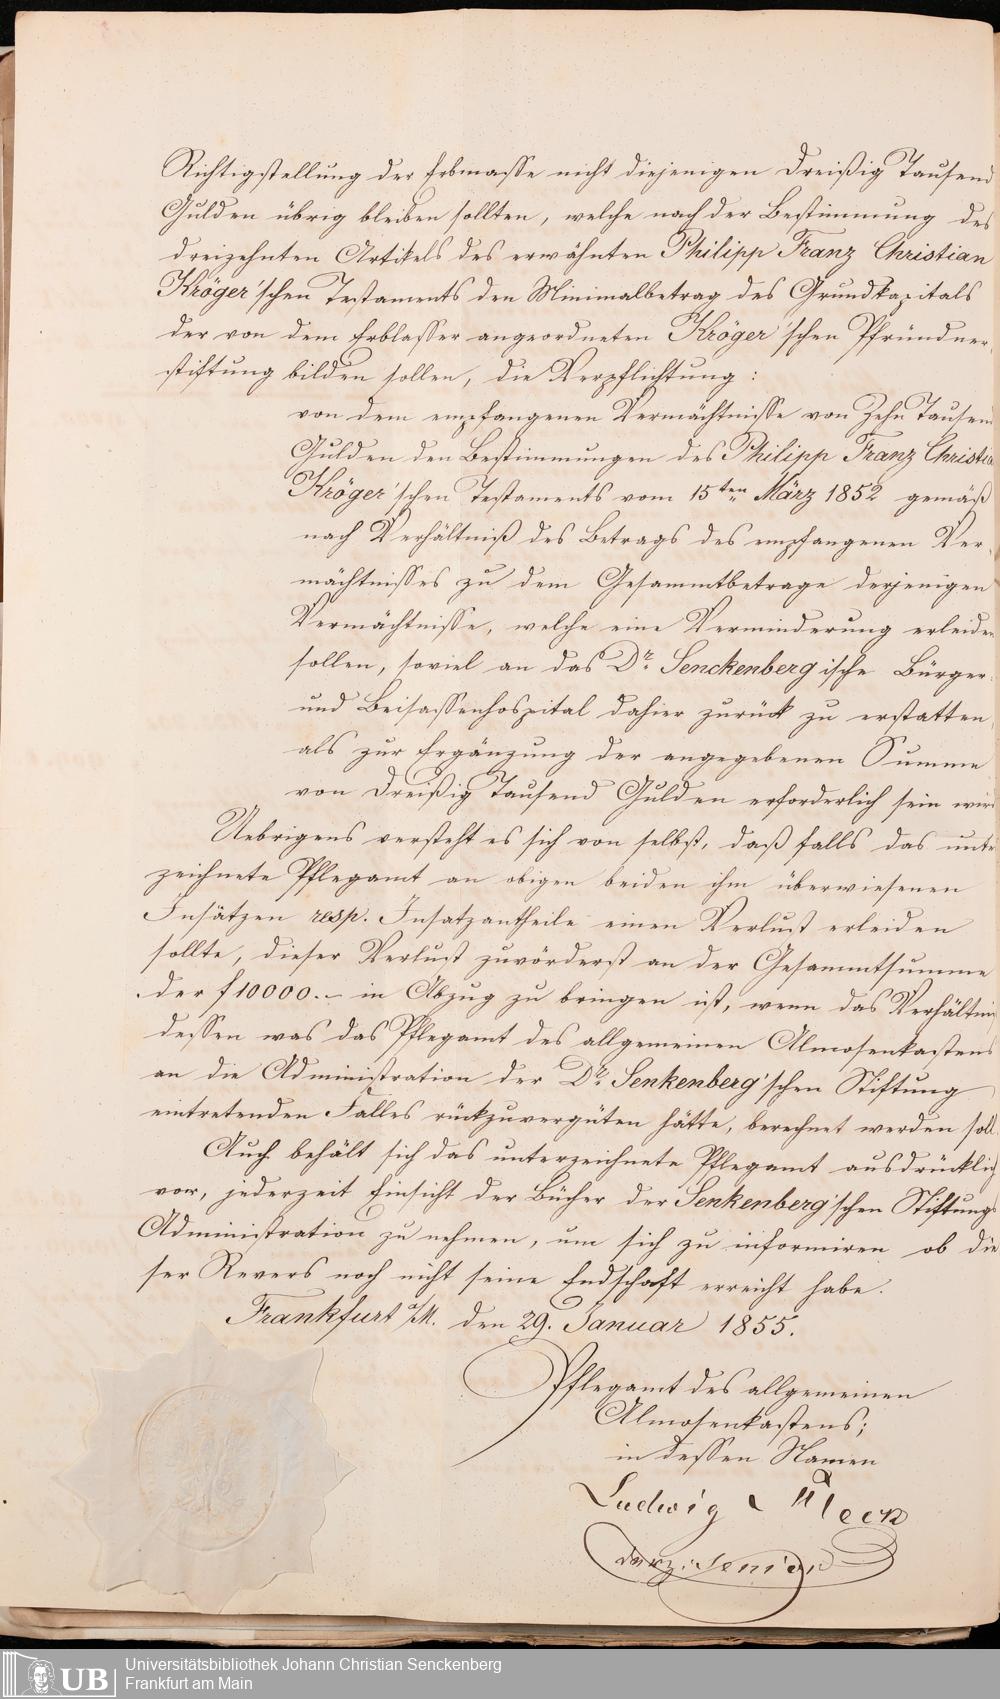 Richtigstellung der Erbmasse nicht diejenigen Dreißig Tausend
Gulden übrig bleiben sollten, welche nach der Bestimmung des
dreizehnten Artikels des erwähnten Philipp Franz Christian
Kröger'schen Testaments den Minimalbetrag des Grundkapitals
der von dem Erblasser angeordneten Kröger'schen Pfründner-
stiftung bilden sollen, die Verpflichtung:
von dem empfangenen Vermächtnisse von Zehn Tausend
Gulden den Bestimmungen des Philipp Franz Christian
Kröger'schen Testaments vom 15ten März 1852 gemäß
nach Verhältniß des Betrags des empfangenen Ver-
mächtnisses zu dem Gesammtbetrage derjenigen
Vermächtnisse, welche eine Verminderung erleiden
sollen, soviel an das Dr. Senckenbergische Bürger-
und Beisassenhospital dahier zurück zu erstatten,
als zur Ergänzung der angegebenen Summe
von Dreißig Tausend Gulden erforderlich sein wird
Uebrigens versteht es sich von selbst, daß falls das unter
zeichnete Pflegamt an obigen beiden ihm überwiesenen
Insätzen resp. Insatzantheile einen Verlust erleiden
sollte, dieser Verlust zuvörderst an der Gesammtsumme
der f 10000.- in Abzug zu bringen ist, wenn das Verhältniß
dessen was das Pflegamt des allgemeinen Almosenkastens
an die Administration der Dr. Senkenberg'schen Stiftung
eintretenden Falles rückzuvergüten hätte, berechnet werden soll.
Auch behält sich das unterzeichnete Pflegamt ausdrücklich
vor, jederzeit Einsicht der Bücher der Senkenberg'schen Stiftungs
Administration zu nehmen, um sich zu informiren ob die
ser Revers noch nicht seine Endschaft erreicht habe.
Frankfurt a/M. den 29. Januar 1855.
Pflegamt des allgemeinen
Almosenkastens;
in dessen Namen
Ludwig
Senior
UB
Universitätsbibliothek Johann Christian Senckenberg
Frankfurt am Main